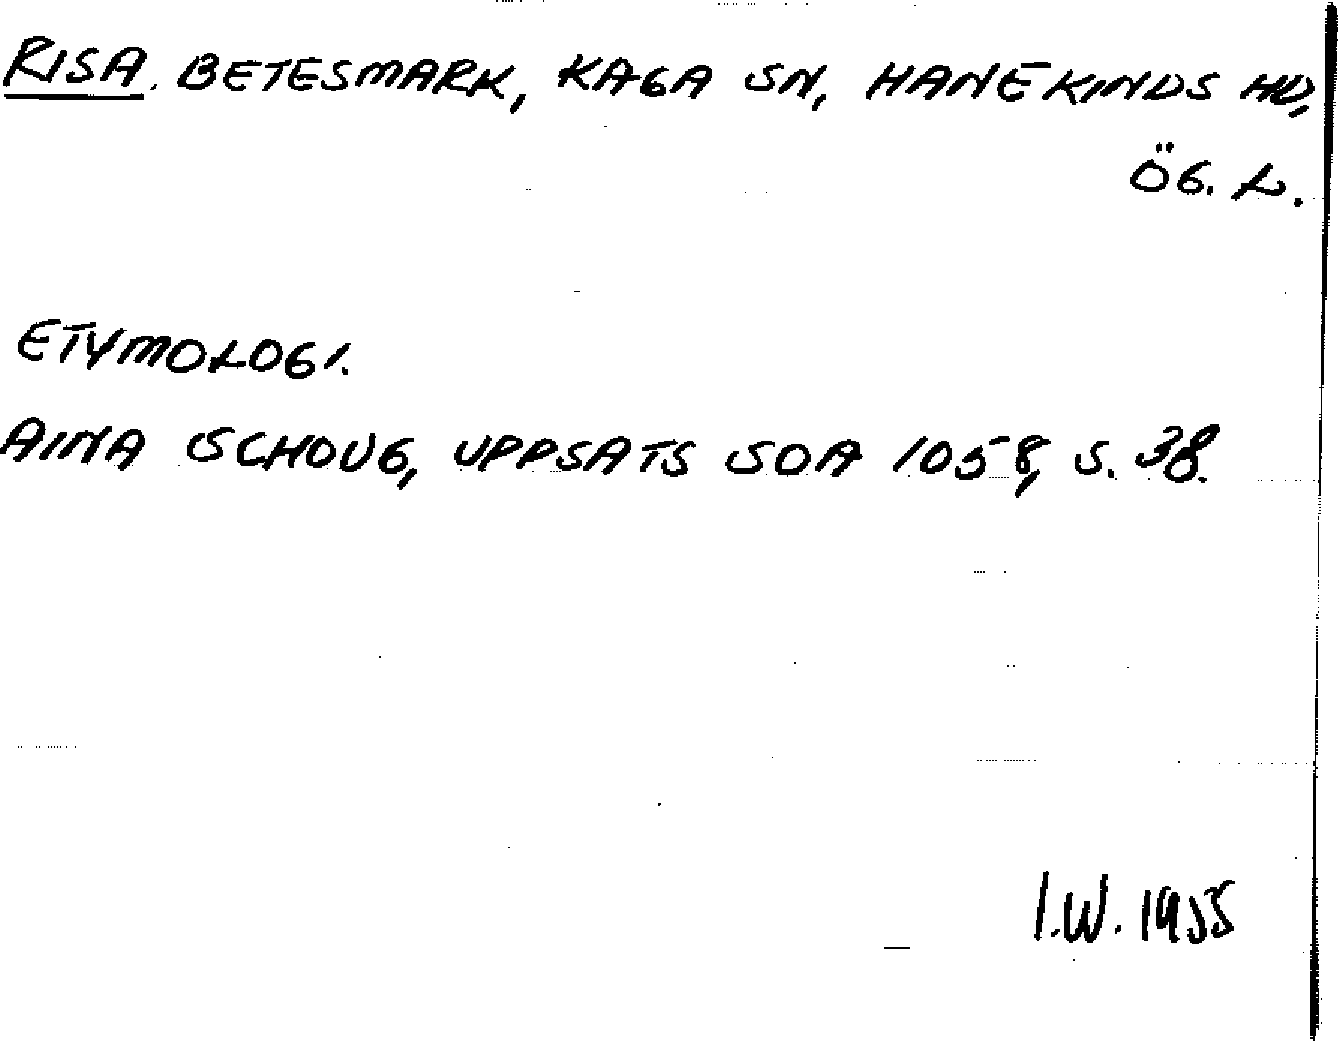 RISA. BETESMARK, KAGA SN, HANEKINDS HD,
ÖG. L.
ETYMOLOGI.
AINA SCHOUG, UPPSATS SOA 1058, S. 38.
I.W. 1955